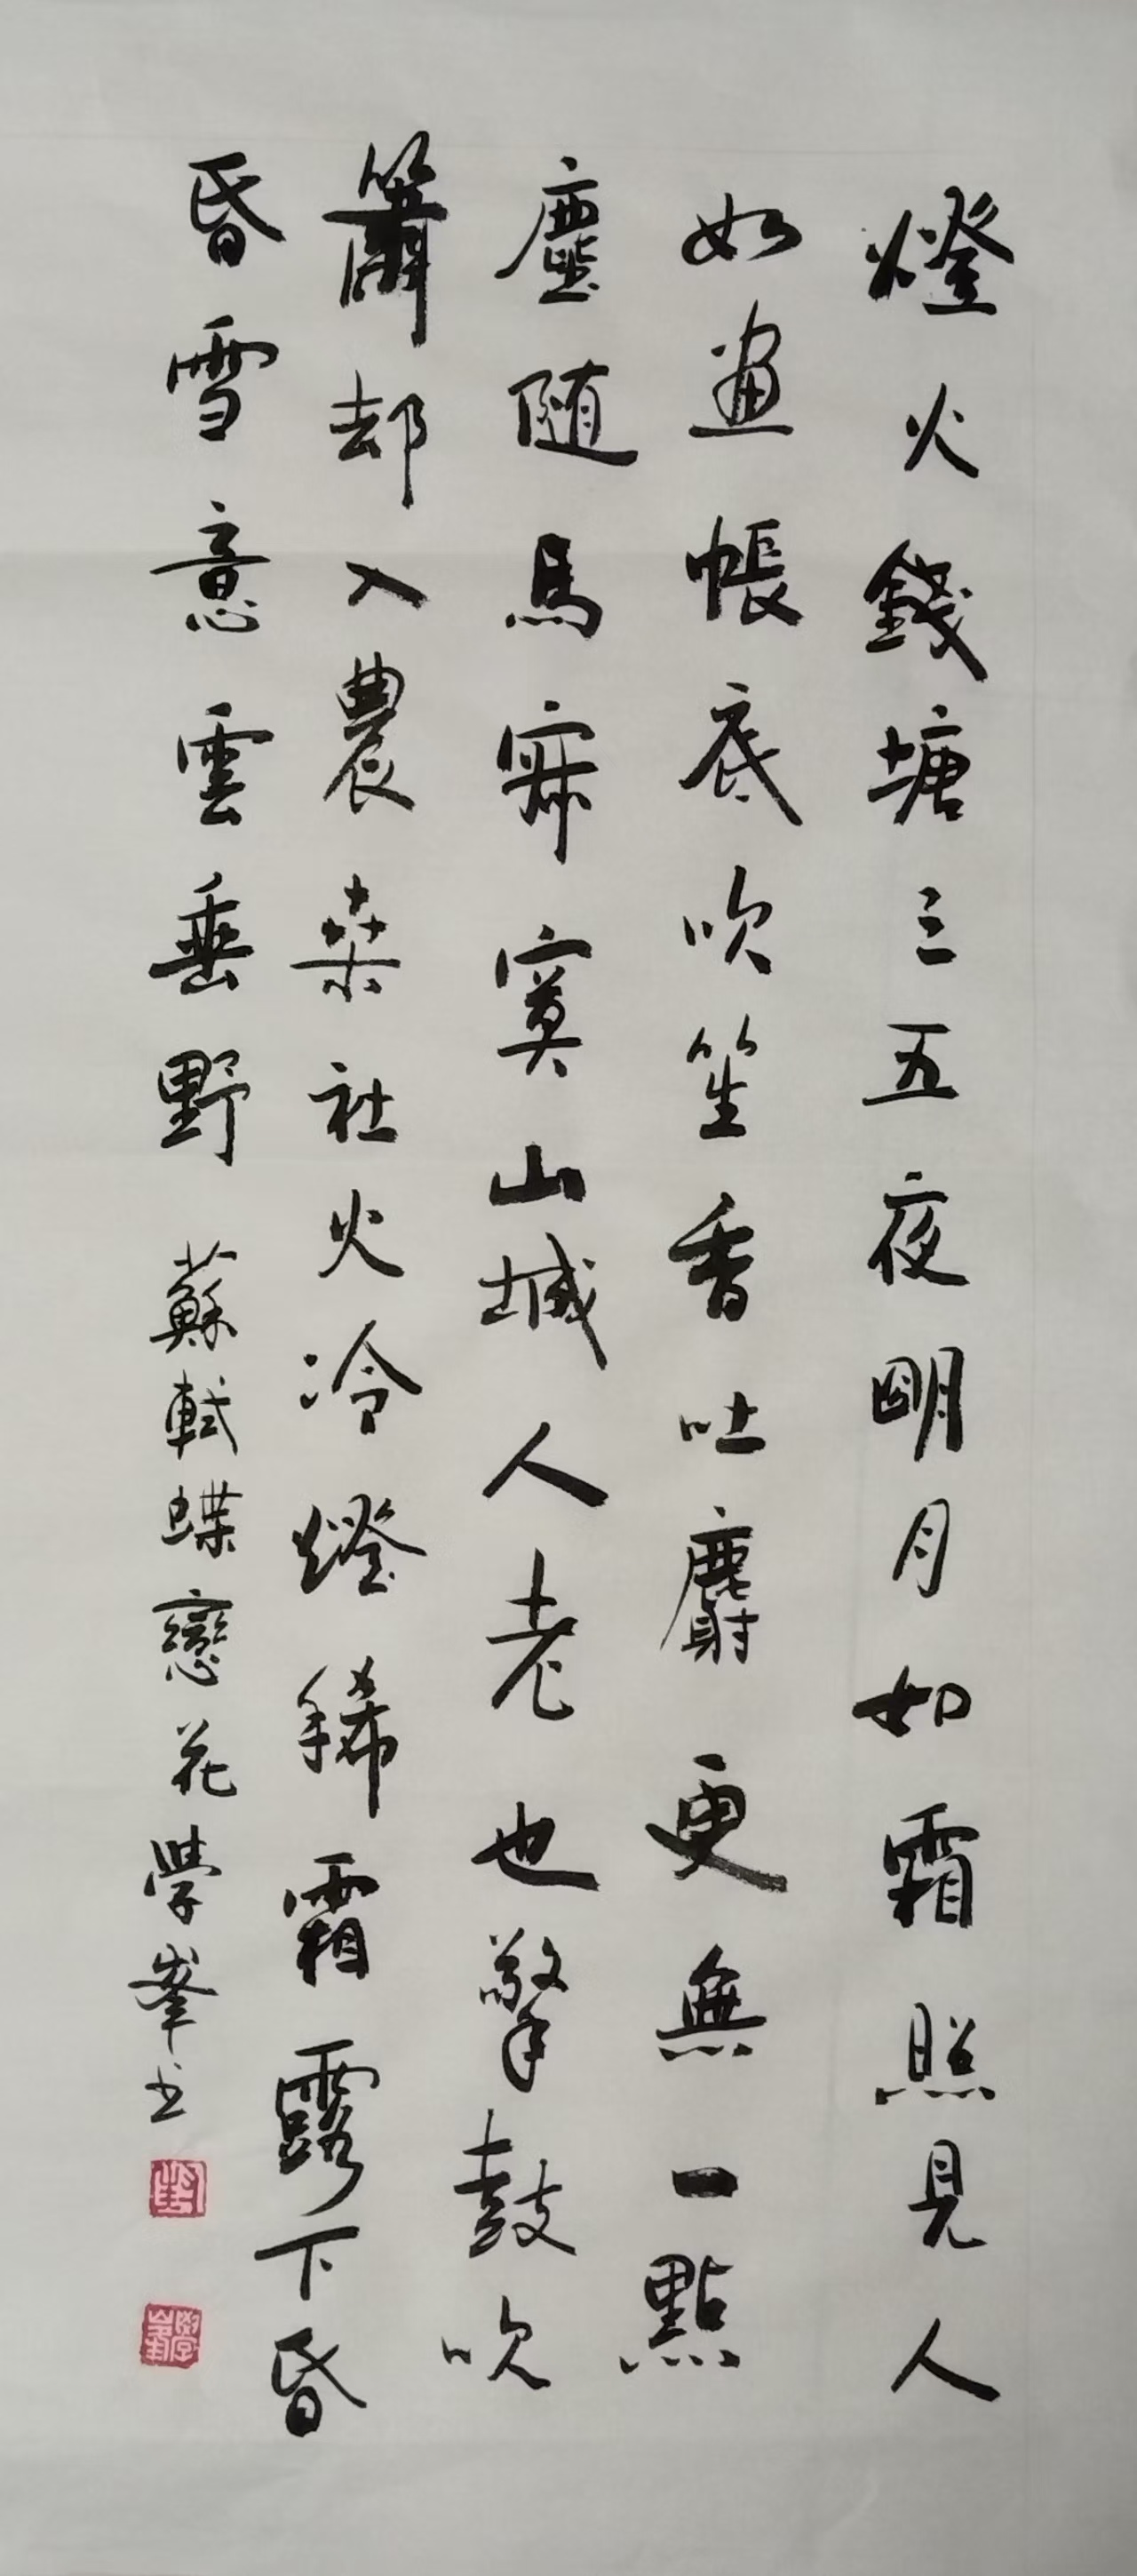 燈火錢塘三五夜明月如霜照見人
如畫帳底吹笙香吐麝更無一點
塵随馬寂寞山城人老也擊鼓吹
簫却入農桒社火冷燈稀霜露下昏
昏雪意雲垂野
蘇軾蝶戀花學峯书
學峯